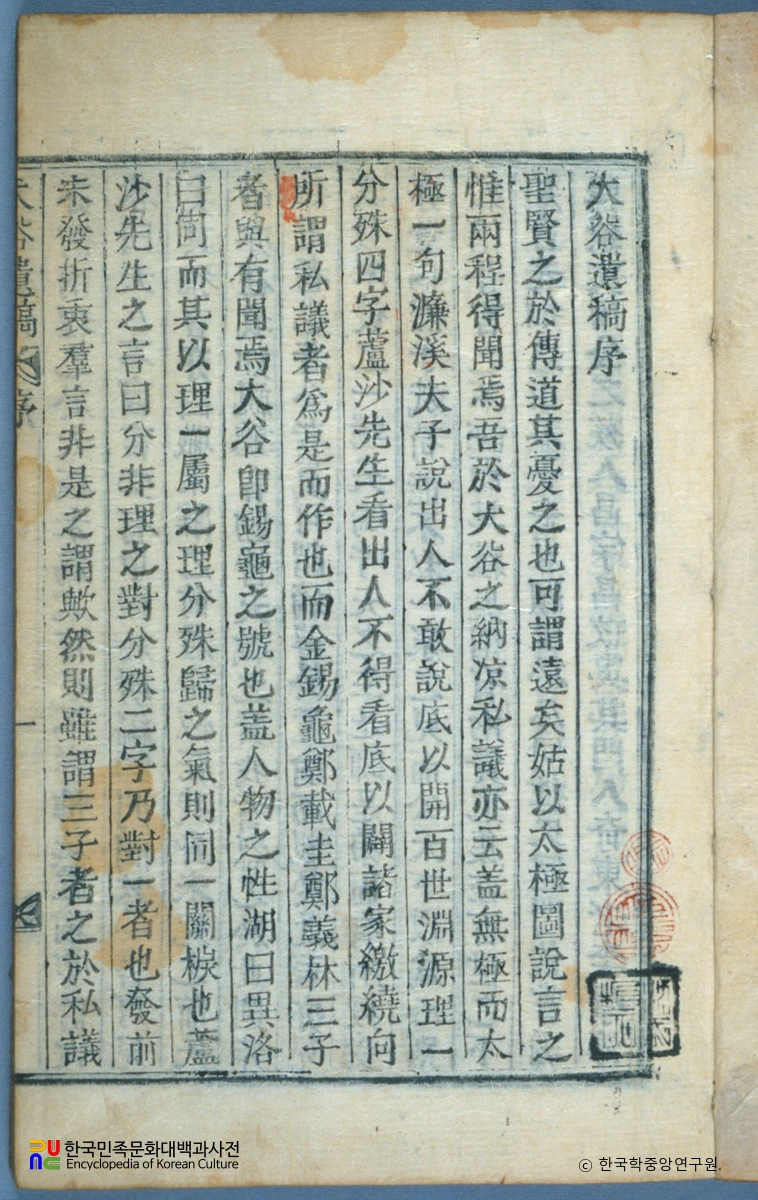 大谷遺稿序
聖賢之於傳道其憂之也可謂遠矣姑以太極圖說言之
惟兩程得聞焉吾於大谷之納凉私議亦云盖無極而太
極一句濂溪夫子說出人不敢說底以開百世淵源理一
分殊四字蘆沙先生看出人不得看底以闢諸家繳繞向
所謂私議者爲是而作也而金錫龜鄭載圭鄭義林三子
者與有聞焉大谷卽錫龜之號也盖人物之性湖曰異洛
曰同而其以理一屬之理分殊歸之氣則同一關棙也蘆
沙先生之言曰分非理之對分殊二字乃對一者也發前
未發折衷羣言非是之謂歟然則雖謂三子者之於私議
大谷遺稿 序
一
한국민족문화대백과사전
Encyclopedia of Korean Culture
© 한국학중앙연구원.